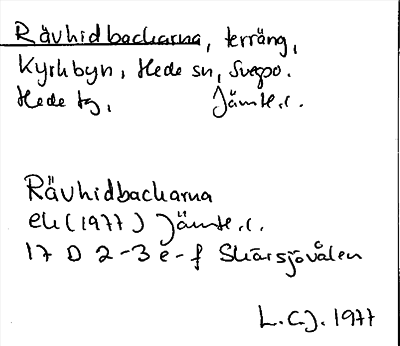 Rävhidbackarna, terräng,
Kyrkbyn, Hede sn, Svegpo.
Hede tg, Jämtl.l.
Rävhidbackarna
ek (1977) Jämtl.l.
17 D 2-3 e-f Skärsjövålen
L.C.J. 1977